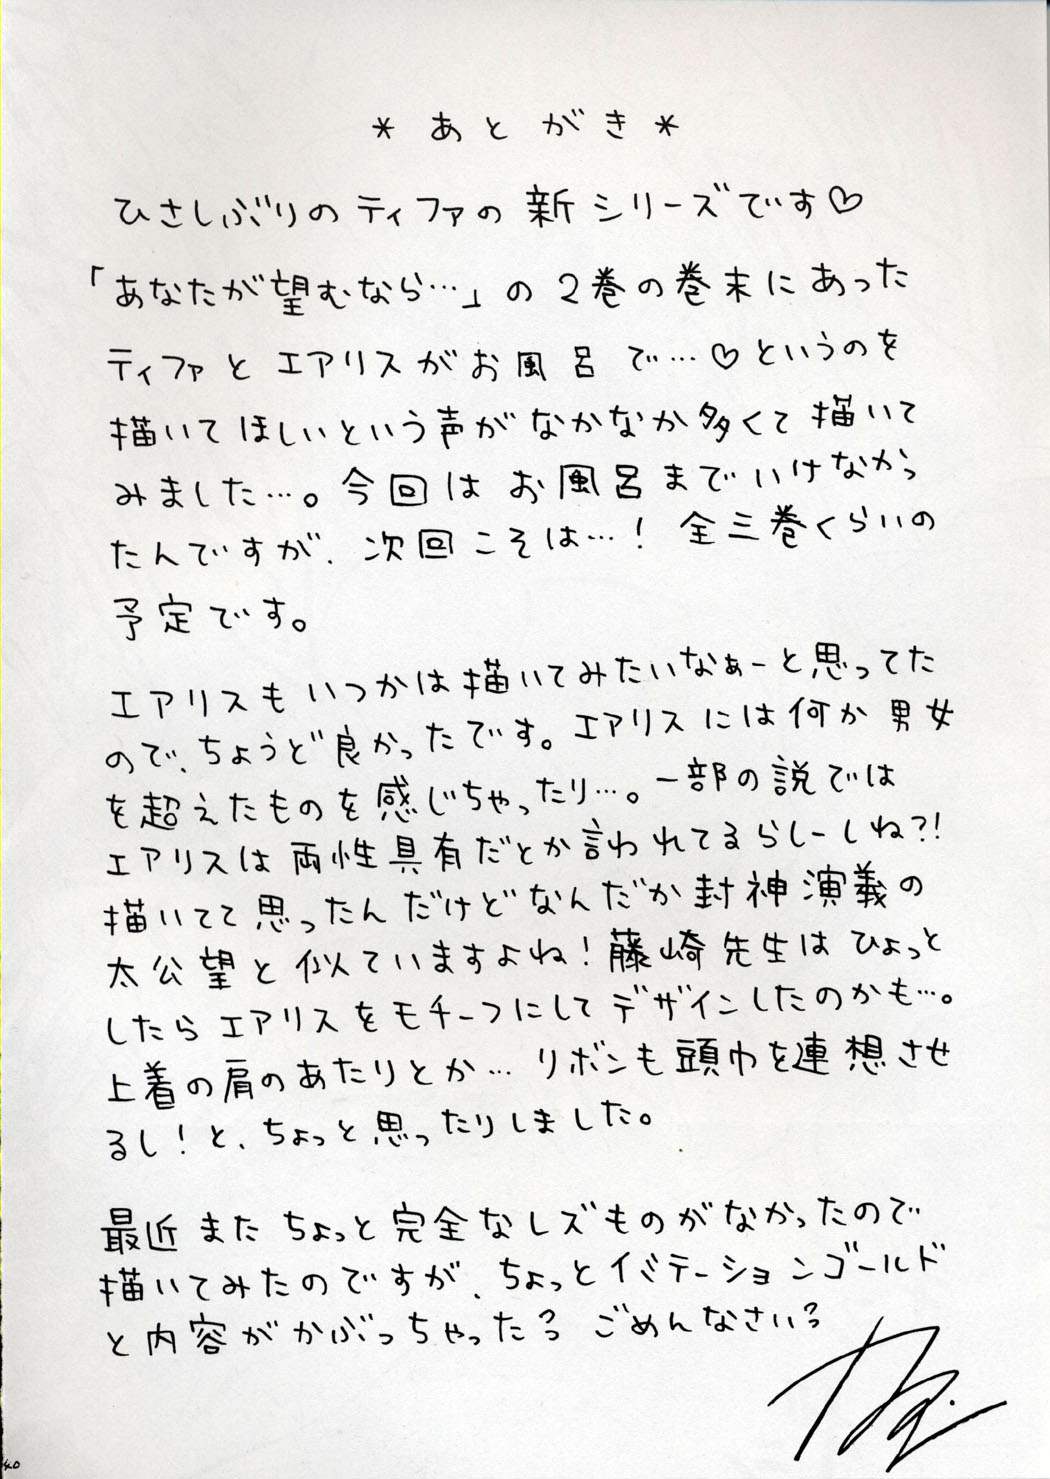 * あとがき *
ひさしぶりのティファの新シリーズです♡
「あなたが望むなら…」の2巻の巻末にあった
ティファとエアリスがお風呂で…♡というのを
描いてほしいという声がなかなか多くて描いて
みました…。今回はお風呂までいけなかっ
たんですが、次回こそは…! 全三巻くらいの
予定です。
エアリスもいつかは描いてみたいなぁーと思ってた
ので、ちょうど良かったです。エアリスには何か男女
を超えたものを感じちゃったり…。一部の説では
エアリスは両性具有だとか言われてるらしーしね?!
描いてて思ったんだけどなんだか封神演義の
太公望と似ていますよね!藤崎先生はひょっと
したらエアリスをモチーフにしてデザインしたのかも…。
上着の肩のあたりとか… リボンも頭巾を連想させ
るし!と、ちょっと思ったりしました。
最近またちょっと完全なレズものがなかったので
描いてみたのですが、ちょっとイミテーションゴールド
と内容がかぶっちゃった
ごめんなさい
40